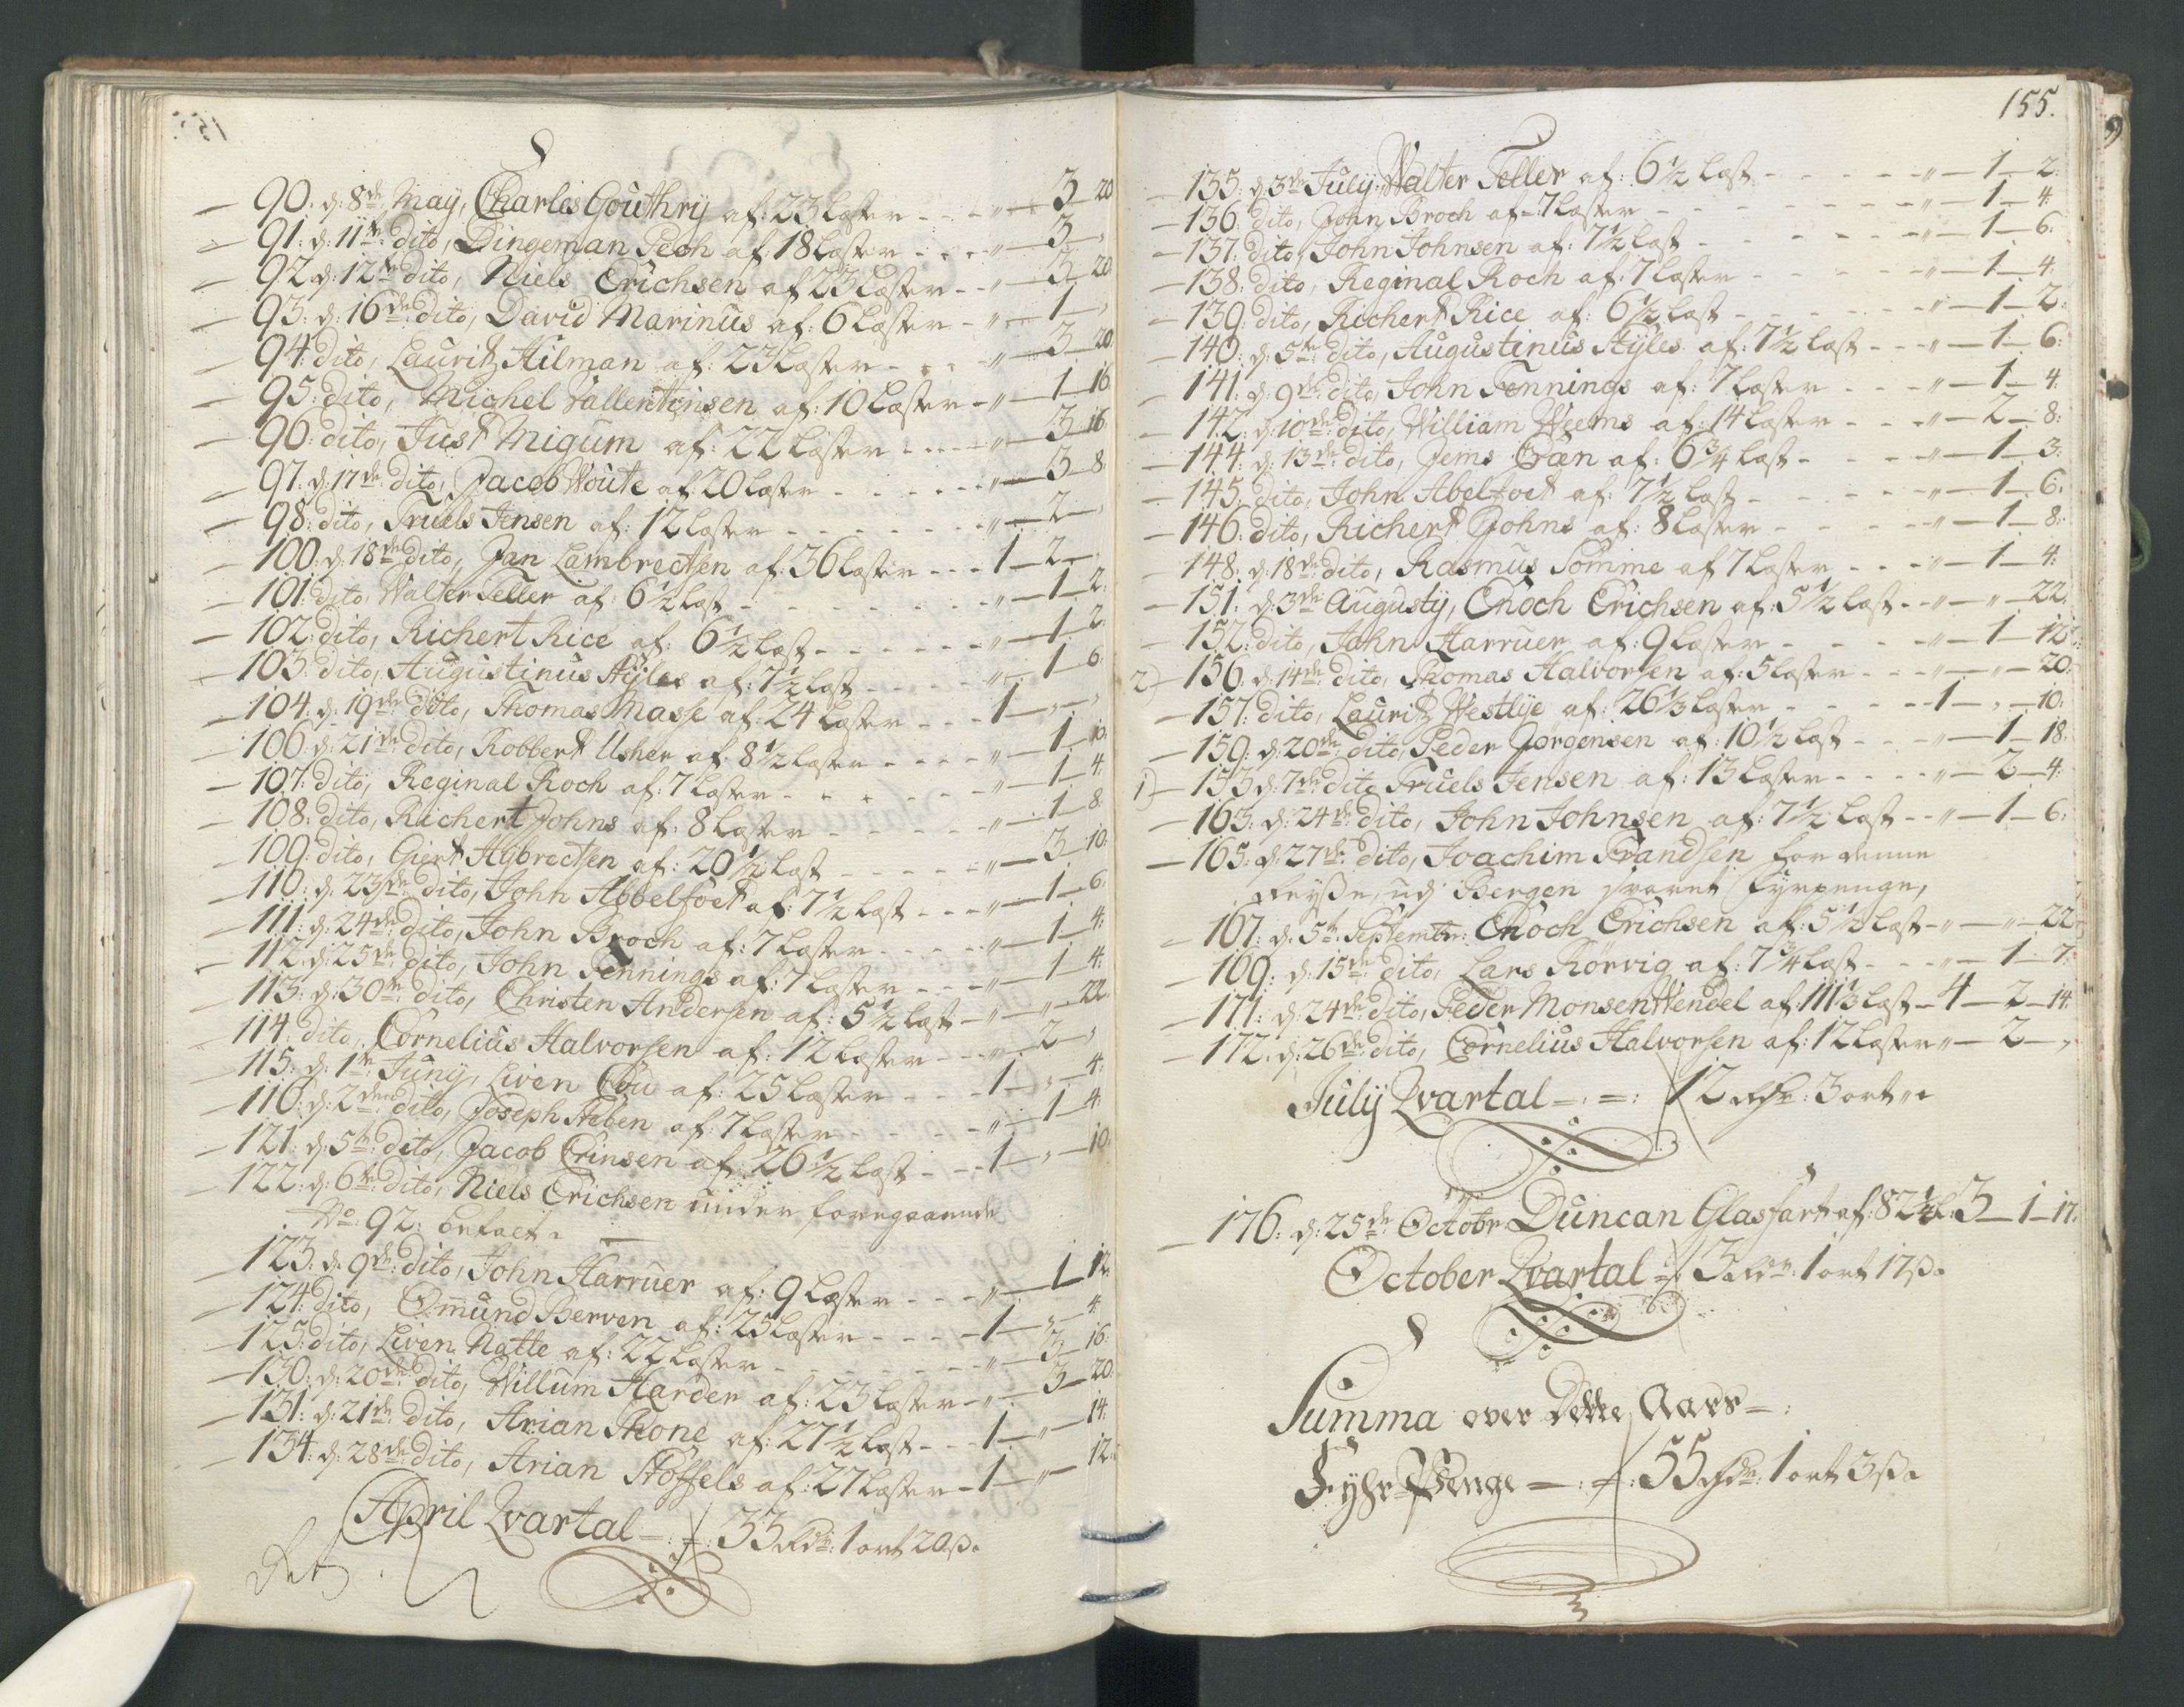 90. d: 8de May, Charles Gouthrij af: 23 læster - - - „ - 3 - 20
91: d: 11te dito, Dingeman Pech af: 18 læster - - - - „ - 3 - „
92. d: 12te dito, Niels Erichsen af 23 læster - - „ - 3 - 20
93: d: 16de dito, David Marinus af: 6 læster - „ - 1 - „
94: dito, Lauritz Hilman af: 23 læster - - - „ - 3 - 20
95: dito, Michel Vallentinsen af: 10 læster - „ - 1 - 16
96: dito, Just Migum af: 22 læster - - - - „ - 3 - 16
97: d: 17de dito, Jacob Woute af: 20 læster - - - - - „ - 3 - 8
98: dito, Truels Jensen af: 12 læster - - - - - „ - 2 - „
100: d: 18de dito, Jan Lambrectsen af: 36 læster - - - 1 - 2 - „
101: dito, Walter Teller af: 6½ læst - - - - - „ - 1 - 2
102: dito, Richert Rice af: 6½ læst - - - - - „ - 1 - 2
103: dito, Augustinus Hÿles af: 7½ læst - - - - „ - 1 - 6
104: d: 19de dito, Thomas Masse af: 24 læster - - - 1 - „ - „
106: d: 21de dito, Robbert Usher af: 8½ læster - - - - „ - 1 - 10
107: dito, Reginal Roch af: 7 læster - - - - - „ - 1 - 4
108: dito, Richert Johns af: 8 læster - - - - - „ - 1 - 8
109: dito, Giert Hybrectsen af: 20½ læst - - - - - „ - 3 - 10
110: d: 23de dito, John Abbelfoct af: 7½ læst - - - „ - 1 - 6
111: d: 24de dito, John Broch af: 7 læster - - - - „ - 1 - 4
112: d: 25de dito, John Fennings af: 7 læster - - - „ - 1 - 4
113: d: 30te dito, Christen Andersen af: 5½ læst - „ - „ - 22
114: dito, Cornelius Halvorsen af: 12 læster - - - „ - 2 - „
115: d: 1te Junij, Liven Cou af: 25 læster - - - 1 - „ - 4
116: d: 2den dito, Joseph Steben af: 7 læster - - - - „ - 1 - 4
121: d: 5te dito, Jacob Erinsen af: 26½ læst - - - 1 - „ - 10
122: d: 6te dito, Niels Erichsen under foregaaende
No: 92: betalt.
123: d: 9de dito, John Harruer af: 9 læster - - - „ - 1 - 12
124: dito, Omund Berven af: 25 læster - - - - 1 - „ - 4
125: dito, Liven Natte af: 22 læster - - - - - „ - 3 - 16
130: d: 20de dito, Willum Harder af: 23 læster - „ - 3 - 20
131: d: 21de dito, Arian Thone af: 27½ læst - - 1 - „ - 14
134: d: 28de dito, Arian Stoffels af: 27 læster - 1 - „ - 12
April Qvartal - : = : 33 Rdr: 1 ort 20 ß.
155.
135: d: 3de July Walter Teller af: 6½ læst - - - - - „ - 1 - 2
136: dito, John Broch af: 7 læster - - - - - „ - 1 - 4
137: dito, John Johnsen af: 7½ læst - - - - - „ - 1 - 6
138: dito, Reginal Roch af: 7 læster - - - - - „ - 1 - 4
139: dito, Richert Rice af: 6½ læst - - - - - „ - 1 - 2
140: d: 5te dito, Augustinus Hÿles af: 7½ læst - - - „ - 1 - 6
141: d: 9de dito, John Fennings af: 7 læster - - - „ - 1 - 4
142: d: 10de dito, William Weems af: 14 læster - - - „ - 2 - 8
144: d: 13de dito, Jems Craen af: 6¾ læst - - - „ - 1 - 3
145: dito, John Abelfoct af: 7½ læst - - - - - „ - 1 - 6
146: dito, Richert Johns af: 8 læster - - - - - „ - 1 - 8
148: d: 18de dito, Rasmus Somme af 7 læster - - - „ - 1 - 4
151: d: 3de Augustij, Enoch Erichsen af: 5½ læst - - „ - „ - 22
152: dito, John Harruer af: 9 læster - - - - - „ - 1 - 12
2) 156: d: 14de dito, Thomas Halvorsen af: 5 læster - - - „ - „ - 20
157: dito, Lauritz Westlÿe af: 26⅓ læster - - - - 1 - „ - 10
159: d: 20de dito, Peder Jorgensen af: 10½ læst - - - „ - 1 - 18
1) 153 d: 7de dito Truels Jensen af: 13 læster - - - - „ - 2 - 4
163: d: 24de dito, John Johnsen af: 7½ læst - - „ - 1 - 6
165: d: 27de dito, Joachim Frandsen for denne
Reÿße, ud Bergen svaret fyrpenge,
167: d: 5te Septembr: Enoch Erichsen af: 5½ læst - „ - „ - 22
169: d: 15de dito, Lars Körvig af: 7¾ læst - - - „ - 1 - 7
171: d: 24de dito, Peder Monsen Wendel af: 111⅓ læst - 4 - 2 - 14
172: d: 26de dito, Cornelius Halvorsen af: 12 læster „ - 2 - „
July Qvartal - : = : 12 Rdr: 3 ort „
176: d: 25de Octobr Duncan Glasfart af: 82½ l: 3 - 1 - 17
October Qvartal = : 3 Rdr: 1 ort 17 ß.
Summa over dette Aars - :
Fyhr-Penge - : = : 55 Rdr: 1 ort 3 ß.